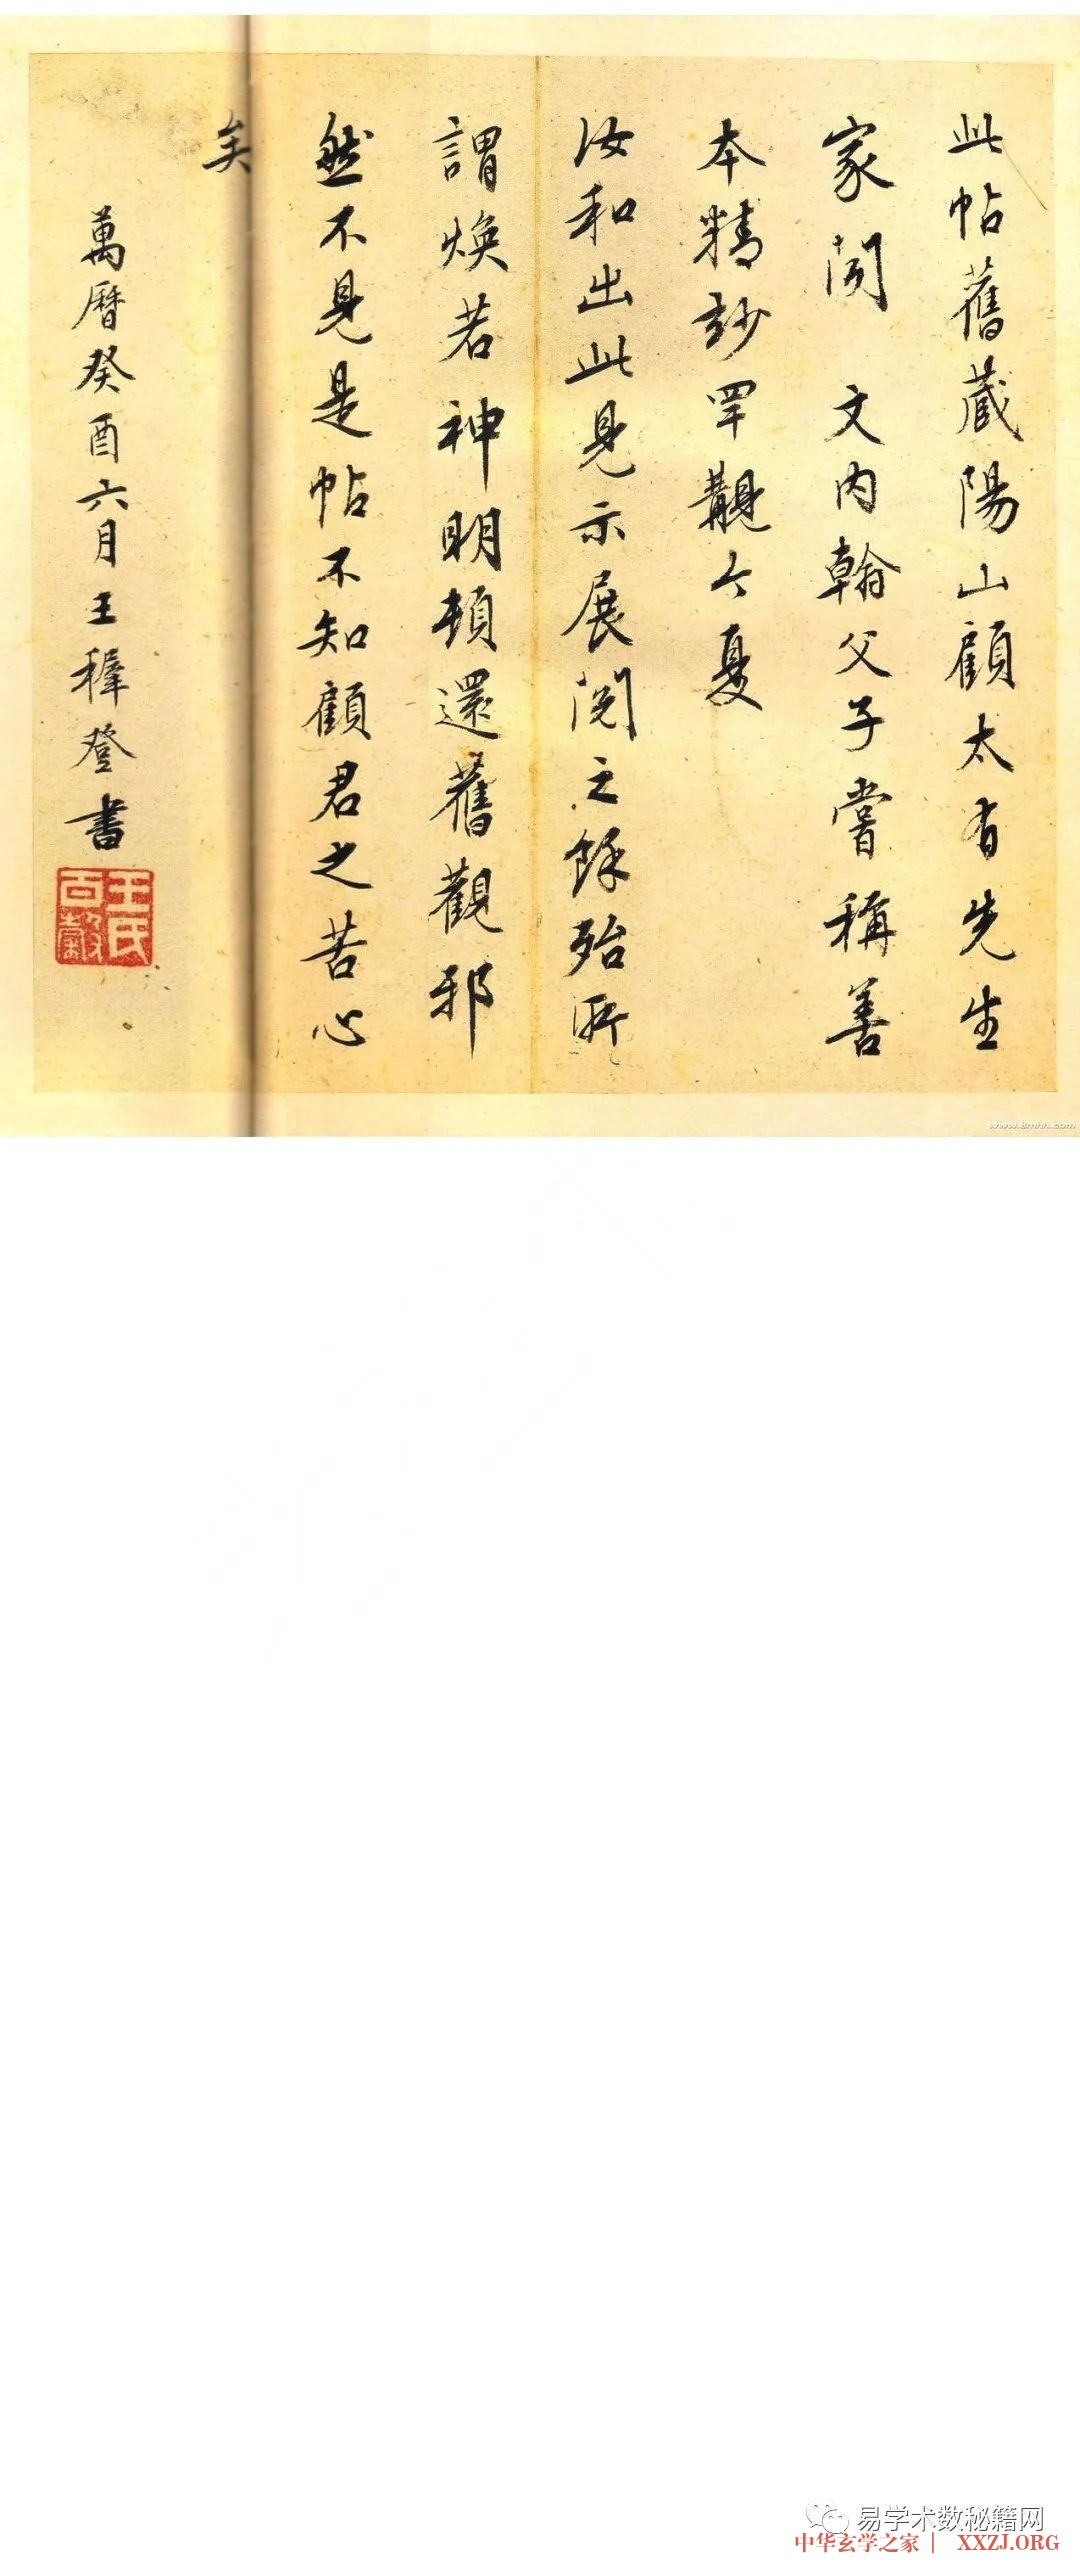 此帖舊藏陽山顧太有先生
家間 文內翰父子嘗稱善
本精妙罕覯今夏
汝和出此見示展閱之餘殆所
謂煥若神明頓還舊觀邪
然不見是帖不知顧君之苦心
矣
萬曆癸酉六月王穉登書
王氏百穀
www.8mhh.com
易学术数秘籍网
中华玄学之家 | XXZJ.ORG